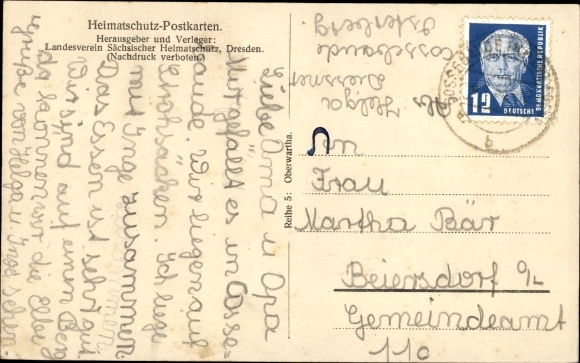 Heimatschutz-Postkarten.
Herausgeber und Verleger:
Landesverein Sächsischer Heimatschutz, Dresden.
(Nachdruck verboten.)
Liebe Oma u Opa
Mir gefällt es in Cosse-
baude. Wir liegen auf
Strohsäcken. Ich liege
mit Inge zusammen.
Das Essen ist sehr gut
Wir sind auf einen Berg
da können wir die Elbe sehen
Grüße von Helga u Inge
Reihe 5: Oberwartha.
Abs. Helga
Cossebaude
12
DEUTSCHE
DEMOKRATISCHE REPUBLIK
b
An
Frau
Martha Bär
Beiersdorf O/L
Gemeindeamt
110